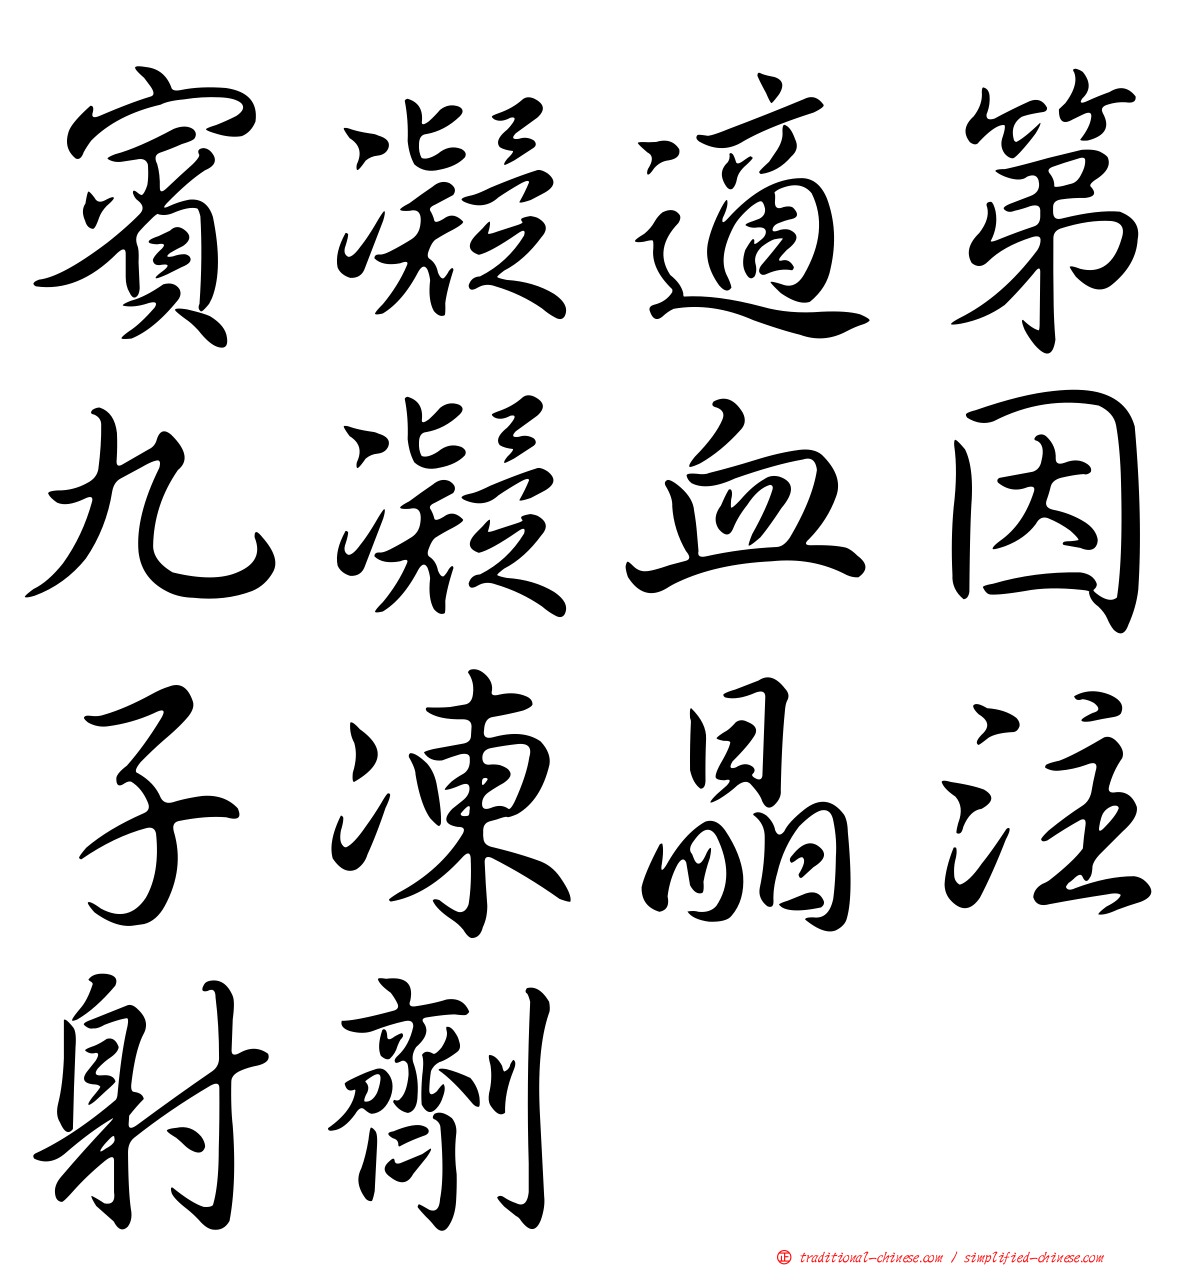 賓凝適第
九凝血因
子凍晶注
射劑
正 traditional-chinese.com / simplified-chinese.com